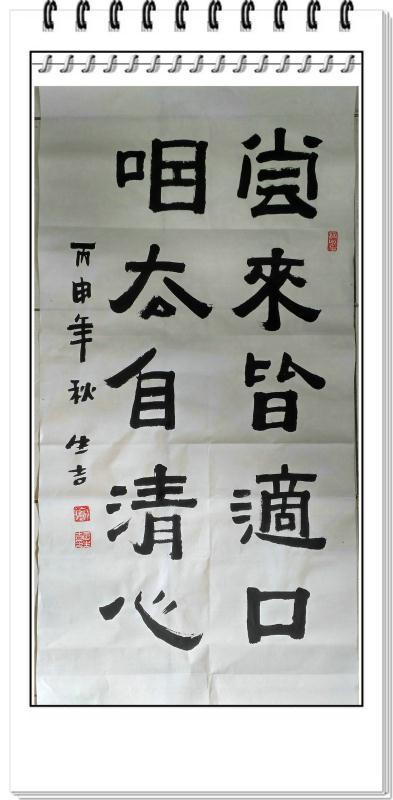 尝來皆適口
咽厺自清心
丙申年秋生吉